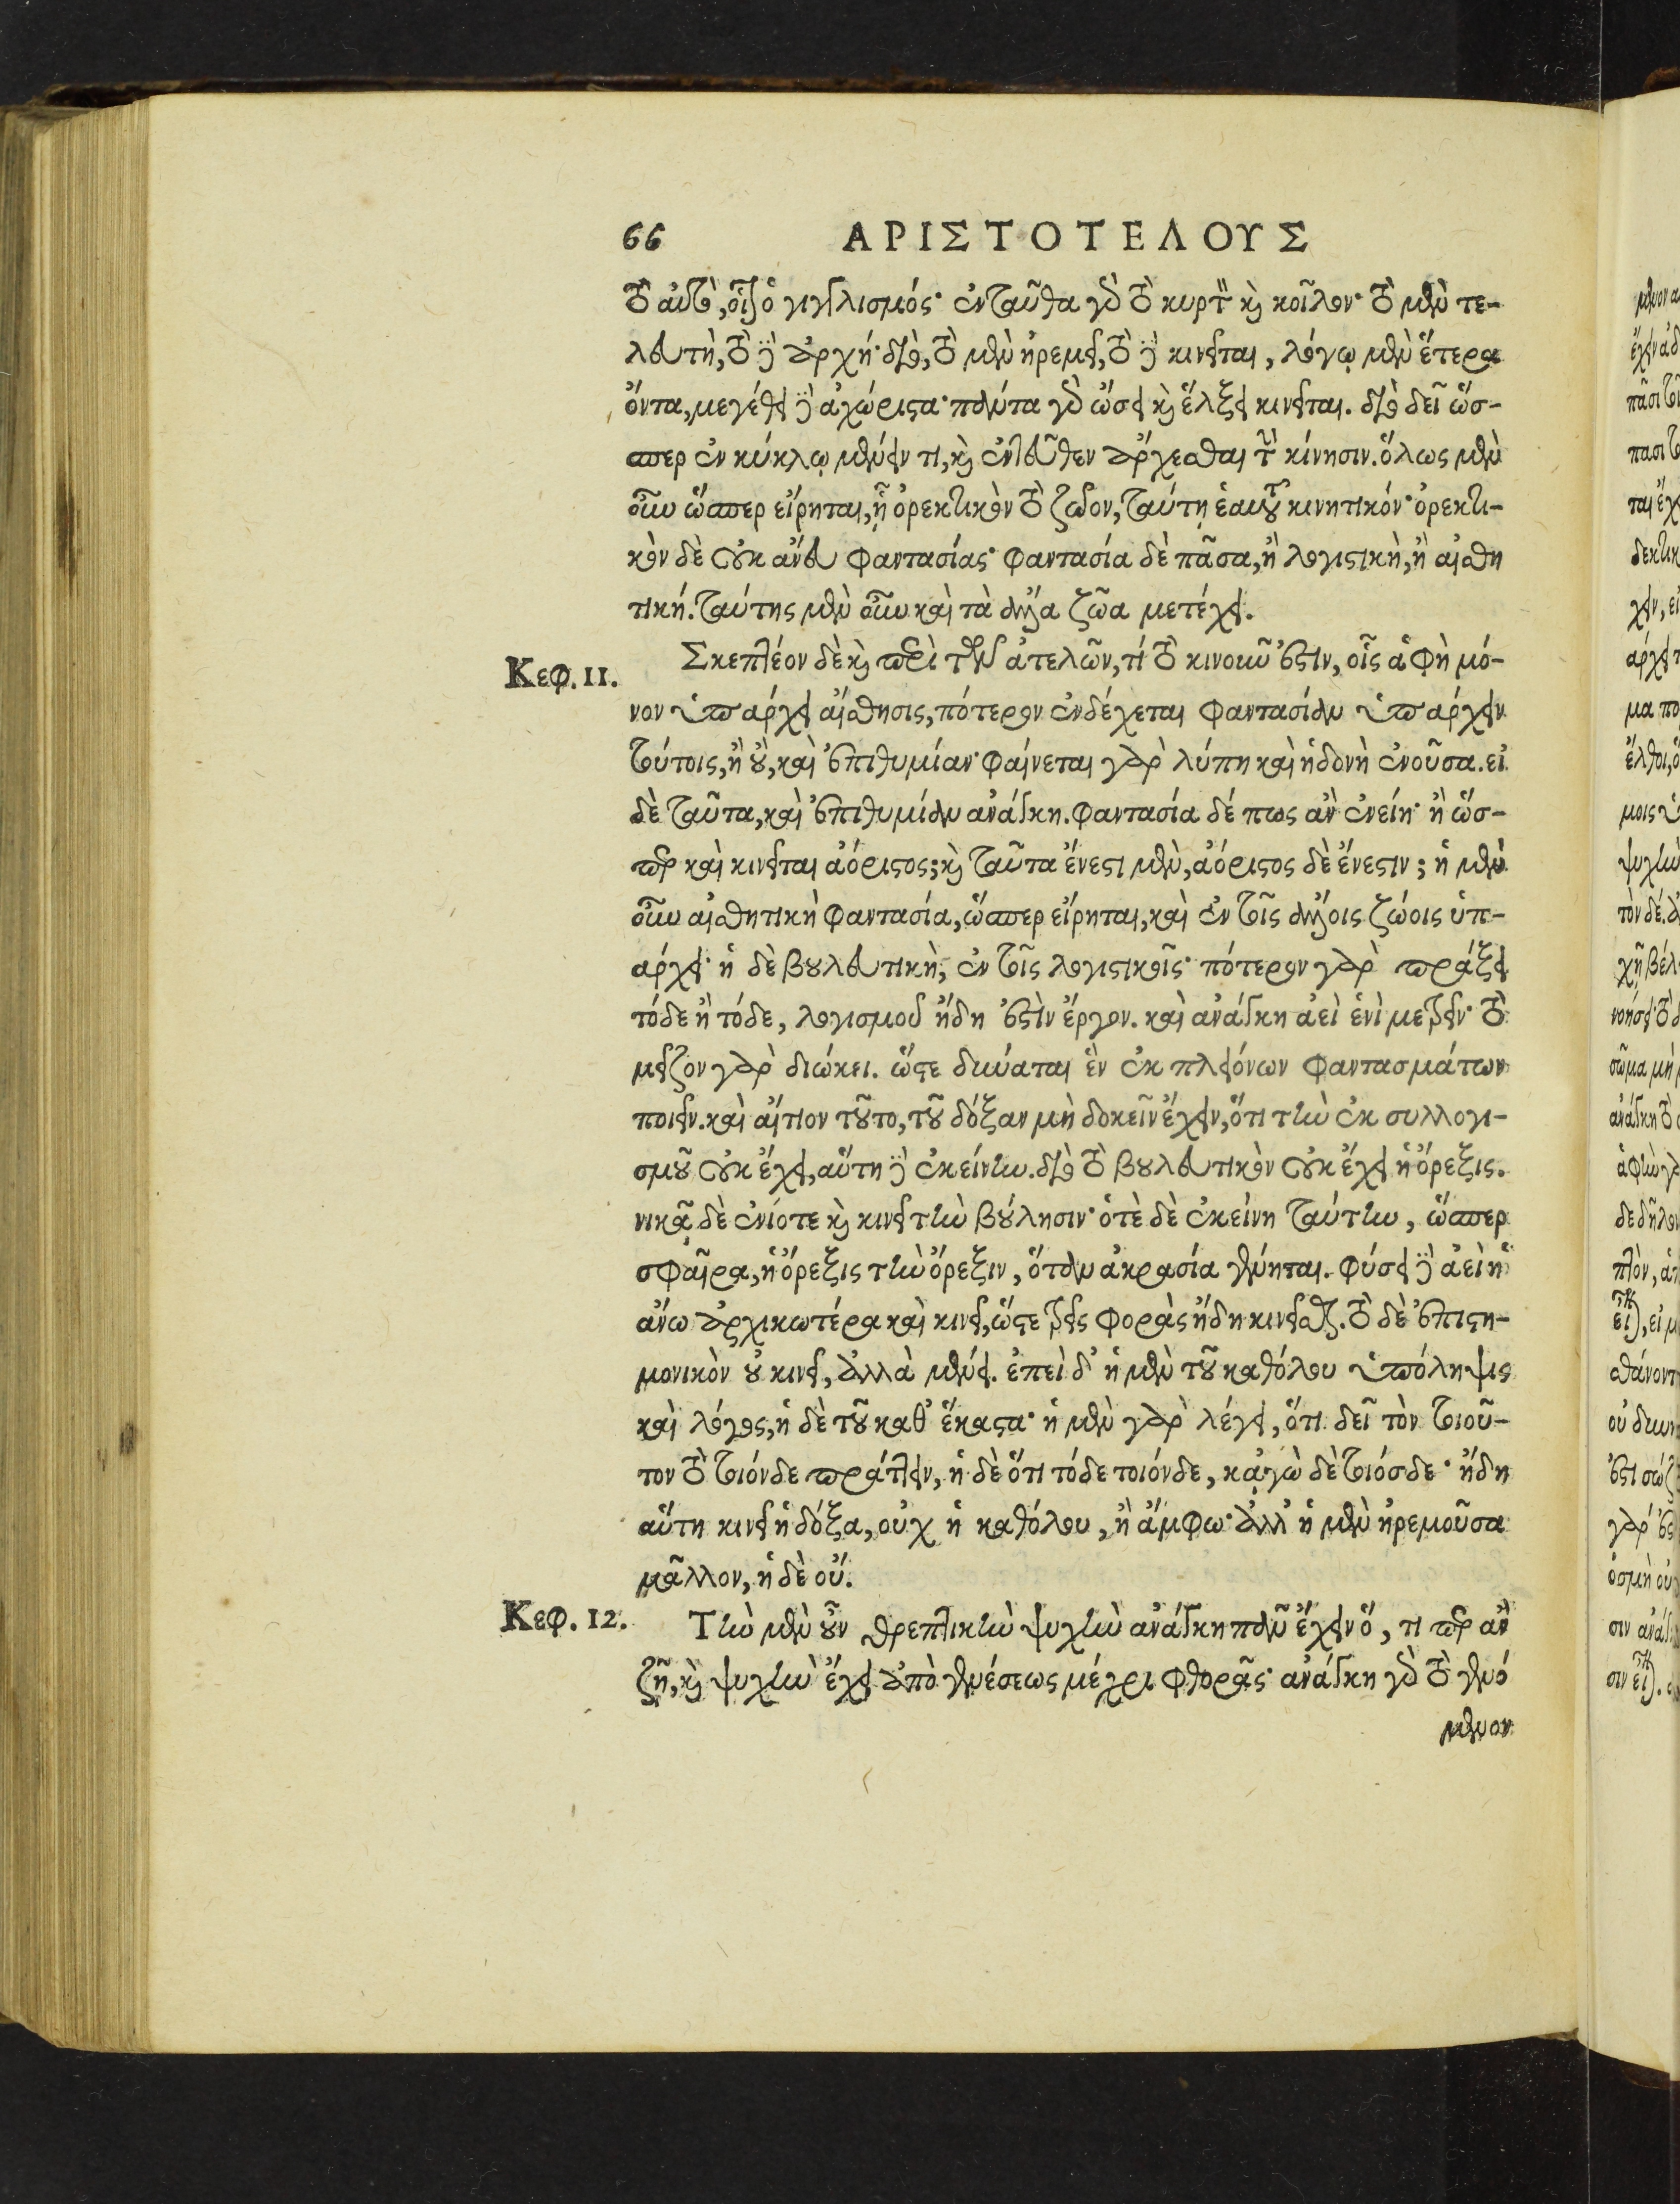 66 ΑΡΙΣΤΟΤΕΛΟΥΣ
τὸ αὐτὸ, οἷον ὁ γιγγλισμός· ἐνταῦθα γὸ τὸ κυρτὸν καὶ κοῖλον· τὸ μὲν τε-
λευτὴ, τὸ δὲ ἀρχή· διὸ, τὸ μὲν ἠρεμεῖ, τὸ δὲ κινεῖται, λόγῳ μὲν ἕτερα
ὄντα, μεγέθει δὲ ἀχώριστα· πάντα γὸ ὤσει καὶ ἕλξει κινεῖται. διὸ δεῖ ὥσ-
περ ἐν κύκλῳ μένειν τι, καὶ ἐντεῦθεν ἄρχεσθαι τὴν κίνησιν. ὅλως μὲν
οὖν ὥσπερ εἴρηται, ᾗ ὀρεκτικὸν τὸ ζῶον, ταύτῃ ἑαυτοῦ κινητικόν· ὀρεκτι-
κὸν δὲ οὐκ ἄνευ φαντασίας· φαντασία δὲ πᾶσα, ἢ λογιστικὴ, ἢ αἰσθη
τική. ταύτης μὲν οὖν καὶ τὰ ἄλλα ζῶα μετέχει.
Κεφ. 11. Σκεπτέον δὲ καὶ περὶ τῶν ἀτελῶν, τί τὸ κινοῦν ἐστιν, οἷς ἁφὴ μό-
νον ὑπάρχει αἴσθησις, πότερον ἐνδέχεται φαντασίαν ὑπάρχειν
τούτοις, ἢ οὒ, καὶ ἐπιθυμίαν· φαίνεται γὰρ λύπη καὶ ἡδονὴ ἐνοῦσα. εἰ
δὲ ταῦτα, καὶ ἐπιθυμίαν ἀνάγκη. φαντασία δέ πως ἂν ἐνείη· ἢ ὥσ-
περ καὶ κινεῖται ἀόριστος; καὶ ταῦτα ἔνεστι μὲν, ἀόριστος δὲ ἔνεστιν; ἡ μὲν
οὖν αἰσθητικὴ φαντασία, ὥσπερ εἴρηται, καὶ ἐν τοῖς ἄλλοις ζώοις ὑπ-
άρχει· ἡ δὲ βουλευτικὴ, ἐν τοῖς λογιστικοῖς· πότερον γὰρ πράξει
τόδε ἢ τόδε, λογισμοῦ ἤδη ἐστὶν ἔργον. καὶ ἀνάγκη ἀεὶ ἑνὶ μετρεῖν· τὸ
μεῖζον γὰρ διώκει. ὥστε δύναται ἓν ἐκ πλειόνων φαντασμάτων
ποιεῖν. καὶ αἴτιον τοῦτο, τοῦ δόξαν μὴ δοκεῖν ἔχειν, ὅτι τὴν ἐκ συλλογι-
σμοῦ οὐκ ἔχει, αὕτη δὲ ἐκείνην. διὸ τὸ βουλευτικὸν οὐκ ἔχει ἡ ὄρεξις.
νικᾷ δὲ ἐνίοτε καὶ κινεῖ τὴν βούλησιν· ὁτὲ δὲ ἐκείνη ταύτην, ὥσπερ
σφαῖρα, ἡ ὄρεξις τὴν ὄρεξιν, ὅταν ἀκρασία γένηται. φύσει δὲ ἀεὶ ἡ
ἄνω ἀρχικωτέρα καὶ κινεῖ, ὥστε τρεῖς φορὰς ἤδη κινεῖσθαι. τὸ δὲ ἐπιστη-
μονικὸν οὐ κινεῖ, ἀλλὰ μένει. ἐπεὶ δ' ἡ μὲν τοῦ καθόλου ὑπόληψις
καὶ λόγος, ἡ δὲ τοῦ καθ' ἕκαστα· ἡ μὲν γὰρ λέγει, ὅτι δεῖ τὸν τοιοῦ-
τον τὸ τοιόνδε πράττειν, ἡ δὲ ὅτι τόδε τοιόνδε, κᾀγὼ δὲ τοιόσδε· ἤδη
αὕτη κινεῖ ἡ δόξα, οὐχ ἡ καθόλου, ἢ ἄμφω· ἀλλ' ἡ μὲν ἠρεμοῦσα
μᾶλλον, ἡ δὲ οὔ.
Κεφ. 12. Τὴν μὲν οὖν θρεπτικὴν ψυχὴν ἀνάγκη πᾶν ἔχειν ὅ, τι περ ἂν
ζῇ, καὶ ψυχὴν ἔχει ἀπὸ γενέσεως μέχρι φθορᾶς· ἀνάγκη γὸ τὸ γενό
μενον